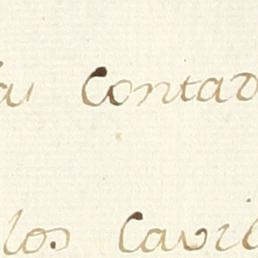 Contad
los Cavil